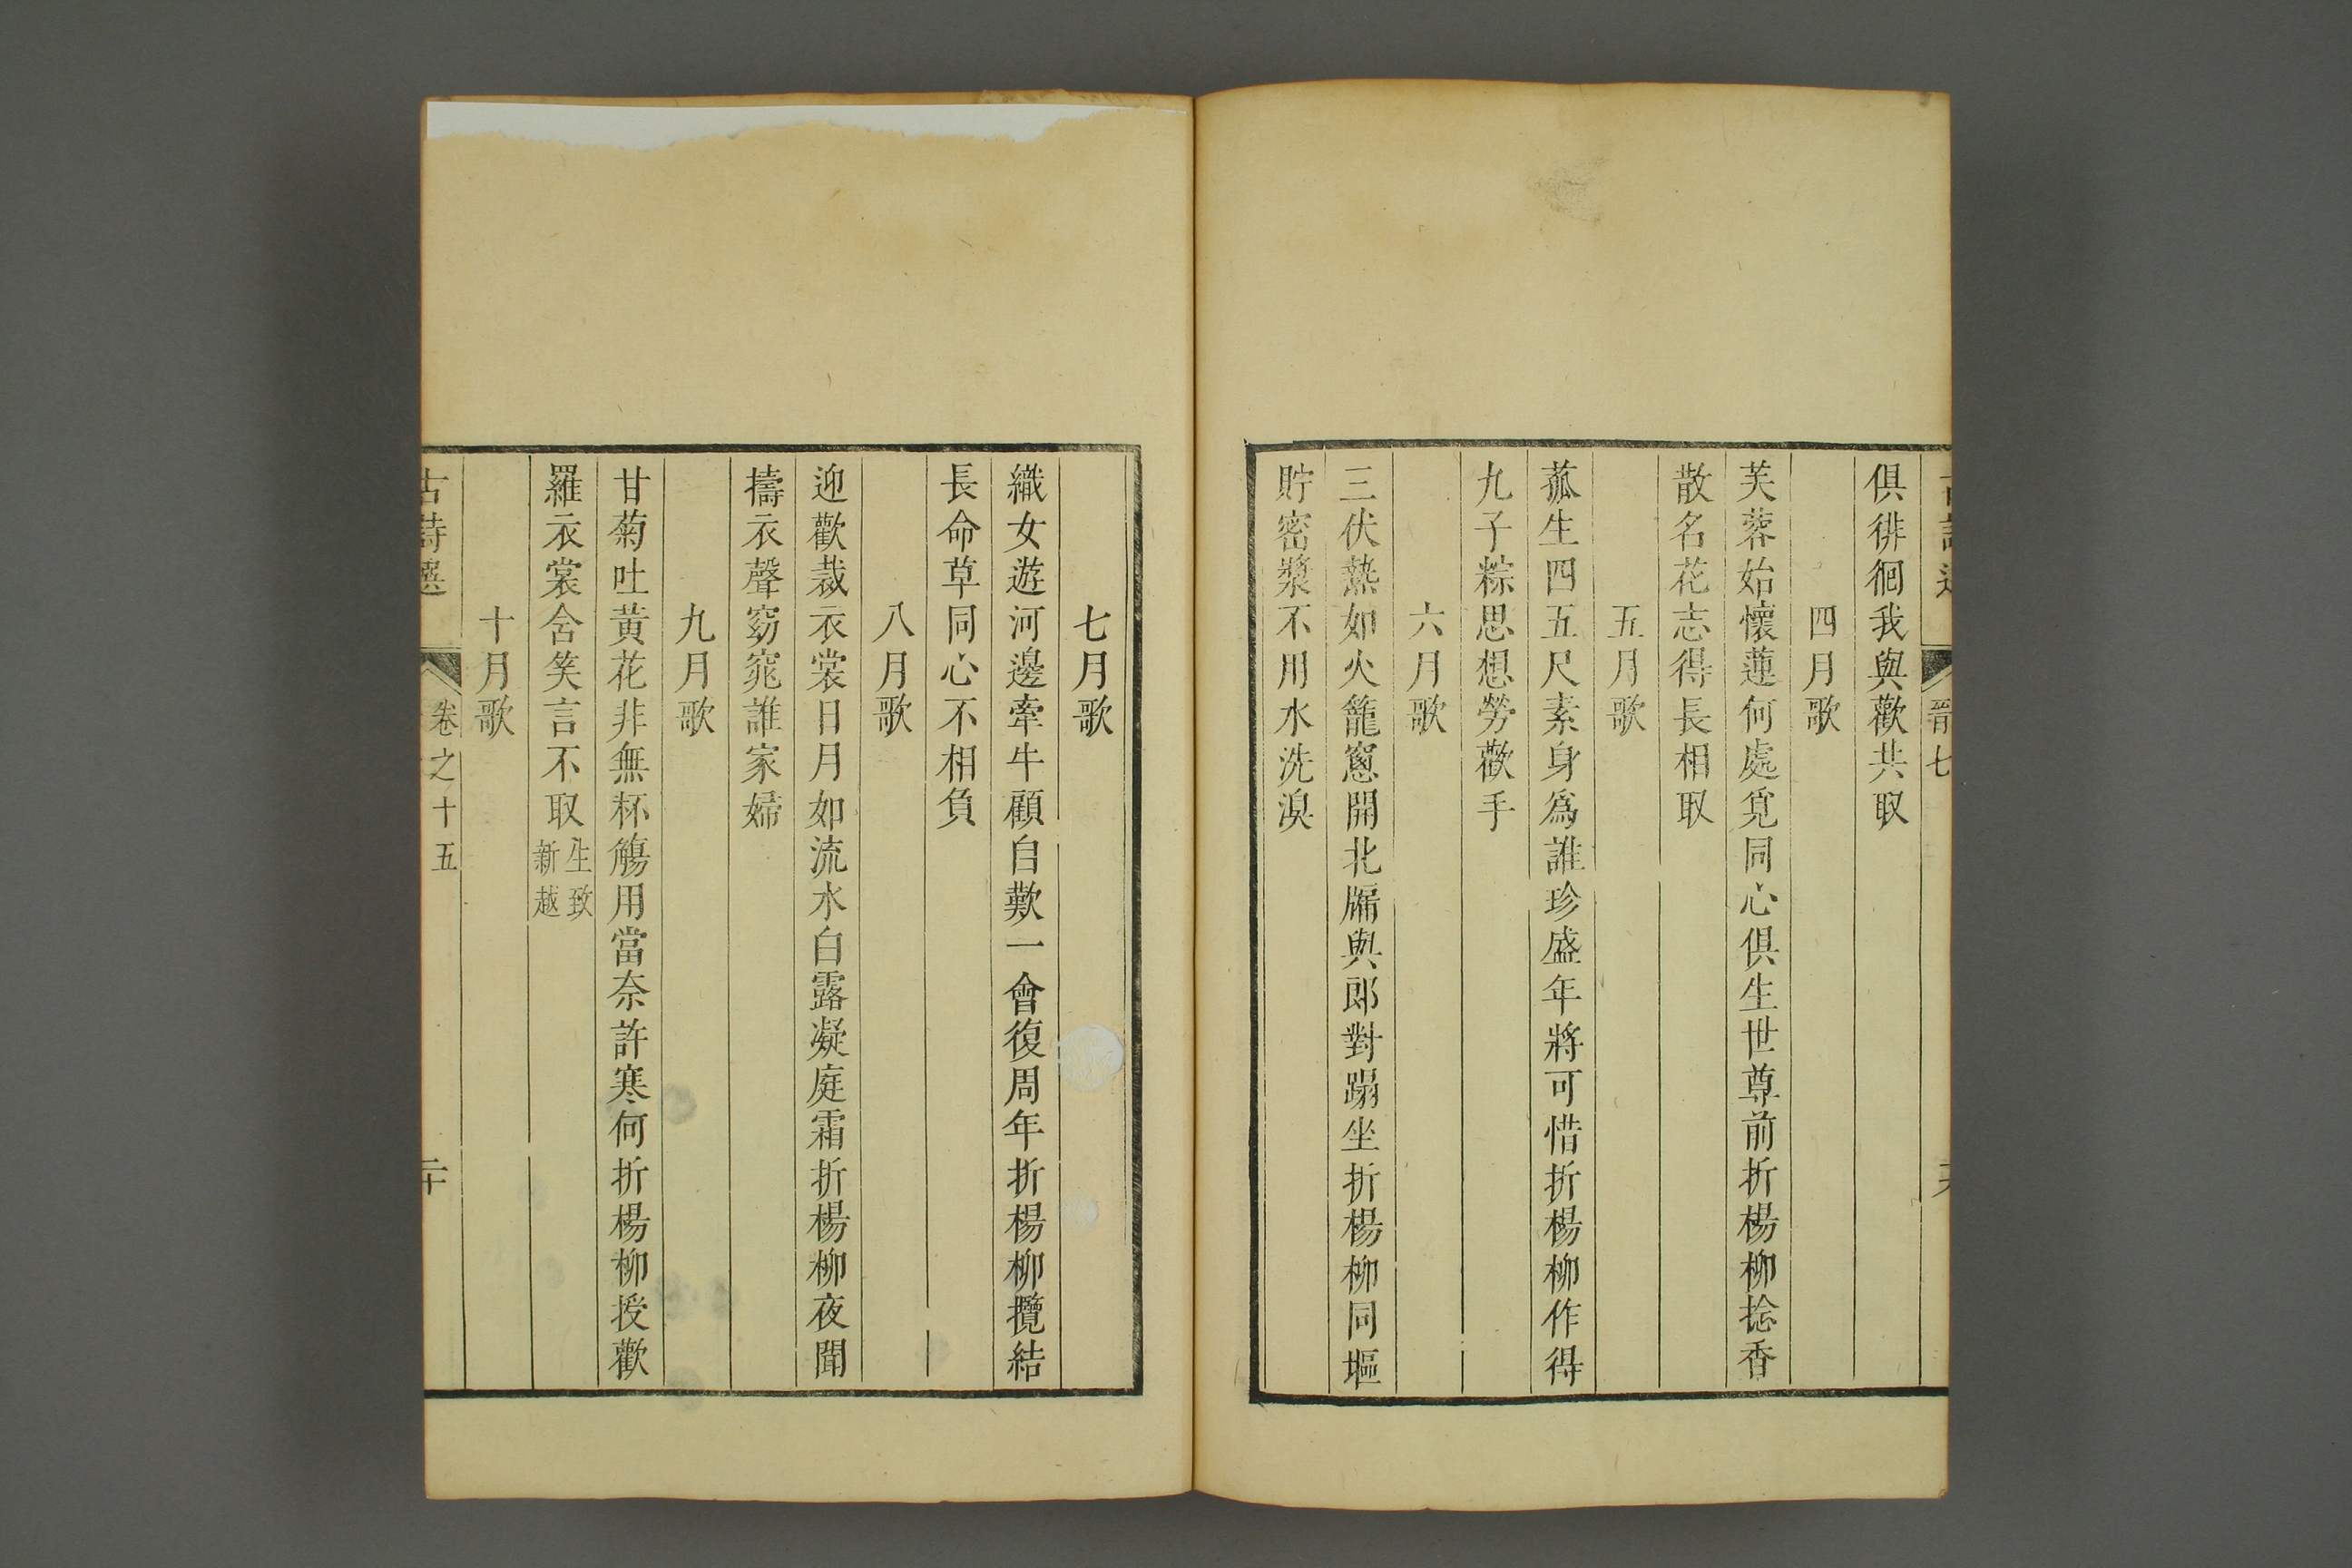 俱徘徊我與歡共取
四月歌
芙蓉始懷蓮何處覓同心俱生世尊前折楊柳捻香
散名花志得長相取
五月歌
菰生四五尺素身爲誰珍盛年將可惜折楊柳作得
九子粽思想勞歡手
六月歌
三伏熱如火籠窻開北牖與郎對蹋坐折楊柳同塸
貯密漿不用水洗溴
晉七
七月歌
織女遊河邊牽牛顧自歎一會復周年折楊柳攬結
長命草同心不相負
八月歌
迎歡裁衣裳日月如流水白露凝庭霜折楊柳夜聞
擣衣聲窈窕誰家婦
九月歌
甘菊吐黃花非無杯觴用當奈許寒何折楊柳授歡
羅衣裳含笑言不取生致新越
十月歌
古詩選 卷之十五 二十